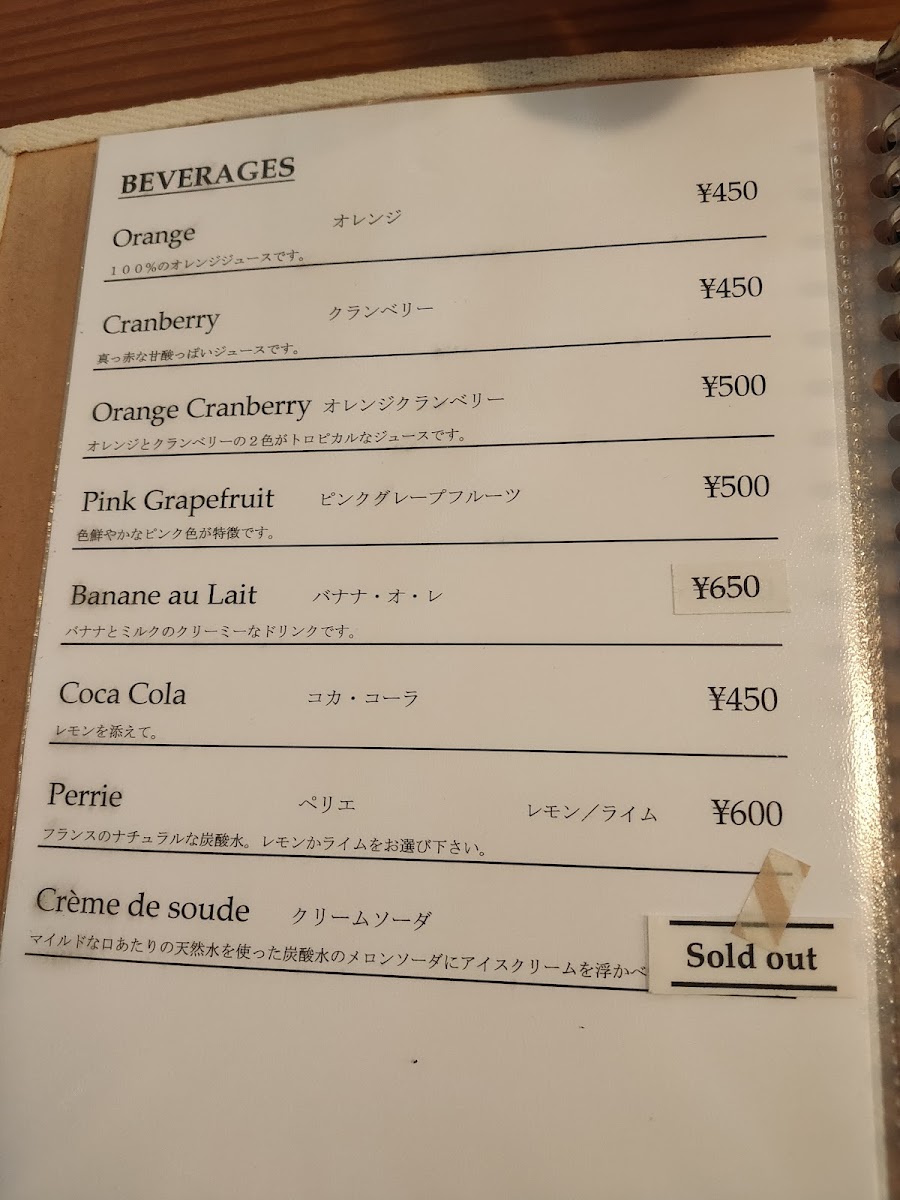 BEVERAGES
Orange オレンジ ¥450
１００％のオレンジジュースです。
Cranberry クランベリー ¥450
真っ赤な甘酸っぱいジュースです。
Orange Cranberry オレンジクランベリー ¥500
オレンジとクランベリーの２色がトロピカルなジュースです。
Pink Grapefruit ピンクグレープフルーツ ¥500
色鮮やかなピンク色が特徴です。
Banane au Lait バナナ・オ・レ ¥650
バナナとミルクのクリーミーなドリンクです。
Coca Cola コカ・コーラ ¥450
レモンを添えて。
Perrie ペリエ レモン／ライム ¥600
フランスのナチュラルな炭酸水。レモンかライムをお選び下さい。
Crème de soude クリームソーダ
マイルドな口あたりの天然水を使った炭酸水のメロンソーダにアイスクリームを浮かべ
Sold out